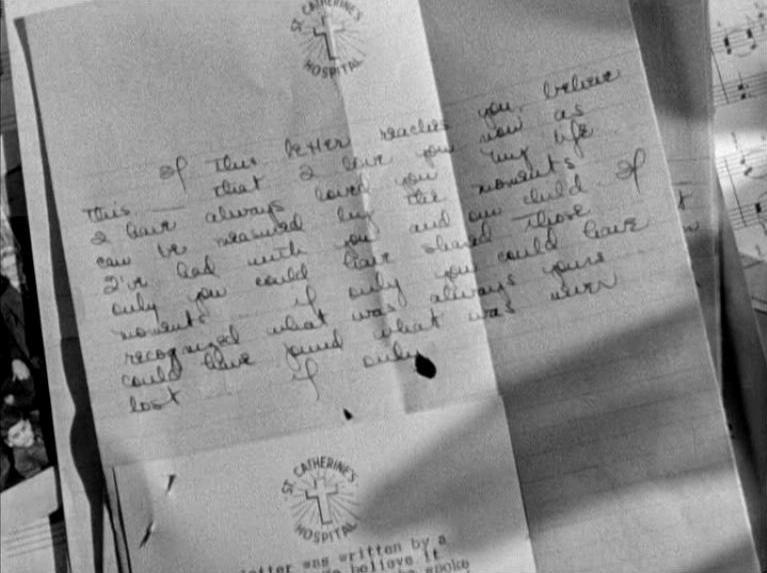 ST. CATHERINE'S
HOSPITAL
If this letter reaches you, believe
this — that I love you now as
I have always loved you My life
can be measured by the moments
I've had with you and our child If
only you could have shared those
moments .. if only you could have
recognized what was always yours
could have found what was never
lost ... if only
ST. CATHERINE'S
HOSPITAL
etter was written by a
believe it
spoke